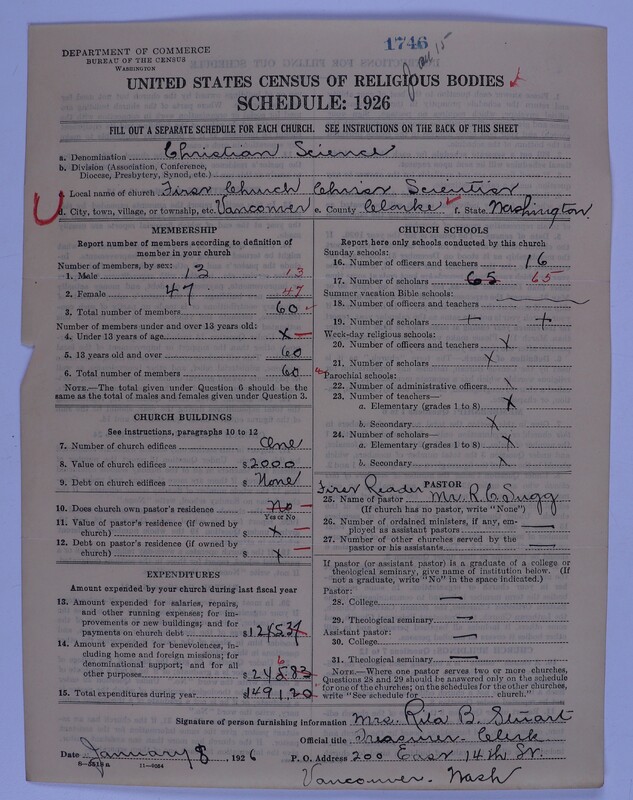 1746
Jan 15
DEPARTMENT OF COMMERCE
BUREAU OF THE CENSUS
WASHINGTON
UNITED STATES CENSUS OF RELIGIOUS BODIES
SCHEDULE: 1926
FILL OUT A SEPARATE SCHEDULE FOR EACH CHURCH. SEE INSTRUCTIONS ON THE BACK OF THIS SHEET
a. Denomination Christian Science
b. Division (Association, Conference,
Diocese, Presbytery, Synod, etc.)
c. Local name of church First Church Christ Scientist
d. City, town, village, or township, etc. Vancouver e. County Clarke f. State Washington.
MEMBERSHIP
Report number of members according to definition of
member in your church
Number of members, by sex:
1. Male 13 13
2. Female 47 47
3. Total number of members 60
Number of members under and over 13 years old:
4. Under 13 years of age X
5. 13 years old and over 60
6. Total number of members 60
NOTE.—The total given under Question 6 should be
the same as the total of males and females given under Question 3.
CHURCH BUILDINGS
See instructions, paragraphs 10 to 12
7. Number of church edifices One
8. Value of church edifices $2000
9. Debt on church edifices $ None
10. Does church own pastor's residence No
Yes or No
11. Value of pastor's residence (if owned by
church) $ X
12. Debt on pastor's residence (if owned by
church) $ X
EXPENDITURES
Amount expended by your church during last fiscal year
13. Amount expended for salaries, repairs,
and other running expenses; for im-
provements or new buildings; and for
payments on church debt $1245.37
14. Amount expended for benevolences, in-
cluding home and foreign missions; for
denominational support; and for all
other purposes $245.83
6
15. Total expenditures during year $1491.20
CHURCH SCHOOLS
Report here only schools conducted by this church
Sunday schools:
16. Number of officers and teachers 16
17. Number of scholars 65 65
Summer vacation Bible schools:
18. Number of officers and teachers
19. Number of scholars + +
Week-day religious schools:
20. Number of officers and teachers X
21. Number of scholars X
Parochial schools:
22. Number of administrative officers \
23. Number of teachers—
a. Elementary (grades 1 to 8) X
b. Secondary X
24. Number of scholars—
a. Elementary (grades 1 to 8) X
b. Secondary X
PASTOR
First Reader
25. Name of pastor Mr. R. C. Sugg
(If church has no pastor, write "None")
26. Number of ordained ministers, if any, em-
ployed as assistant pastors —
27. Number of other churches served by the
pastor or his assistants —
If pastor (or assistant pastor) is a graduate of a college or
theological seminary, give name of institution below. (If
not a graduate, write "No" in the space indicated.)
Pastor:
28. College —
29. Theological seminary —
Assistant pastor:
30. College —
31. Theological seminary —
NOTE.—Where one pastor serves two or more churches,
Questions 28 and 29 should be answered only on the schedule
for one of the churches; on the schedules for the other churches,
write "See schedule for church."
Signature of person furnishing information Mrs. Rita B. Stuart
Official title Treasurer - Clerk
Date January 8, 1926 P. O. Address 200 East 14th St.
8-5518a 11-6084
Vancouver - Wash